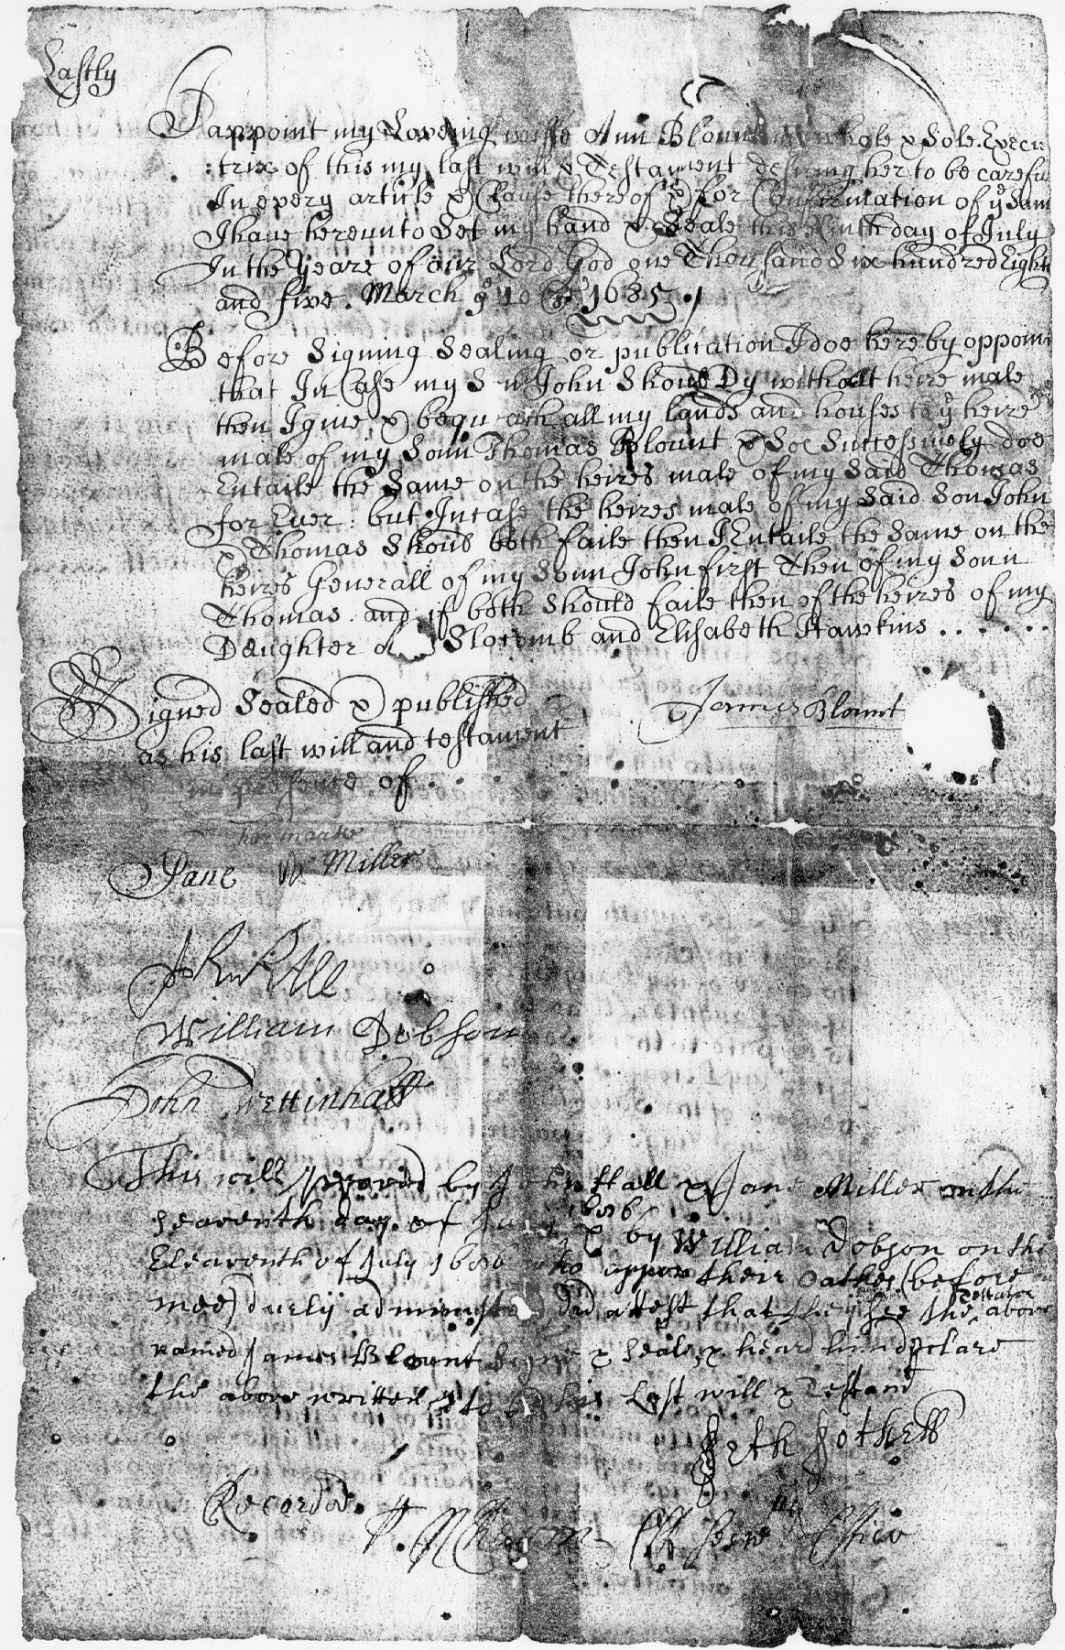 Lastly
I appoint my Loveing wiffe Ann Blount my whole & Sole Execu
:trix of this my last will & Testament desiring her to be carefu
In every article & Clause thereof & for Confirmation of ye Sam
I have hereunto Set my hand & Seale this day of July
In the Yeare of our Lord God one Thousand Six hundred Eight
and five. March ye 10 1685
Before Signing Sealing or publication I doe hereby appoint
that In Case my Son John Should Dy without heire male
then I give & bequeath all my lands and houses to ye heire
male of my Sonn Thomas Blount & Soe Successively doe
Entaile the Same on the heires male of my Said Thomas
for Ever: but Incase the heires male of my Said Son John
& Thomas Should both faile then I Entaile the Same on the
heires Generall of my Sonn John first Then of my Sonn
Thomas. and if both Should faile then of the heires of my
Daughter Slocomb and Elisabeth Hawkins . . . . . .
Signed Sealed & published
as his last will and testament
in presence of
James Blount
her marke
Jane Miller
John Hall
William Dobson
John Twettinhall
This will proved by John Hall & Jane Miller on the
seaventh day of July 1686
& by William Dobson on the
Eleaventh of July 1686 who uppon their oathes (before
mee) duely administred did attest that they see the testator above
named James Blount signe & seale & heard him declare
the above written to be his Last will & Testamt
Seth Sothell
Recorded